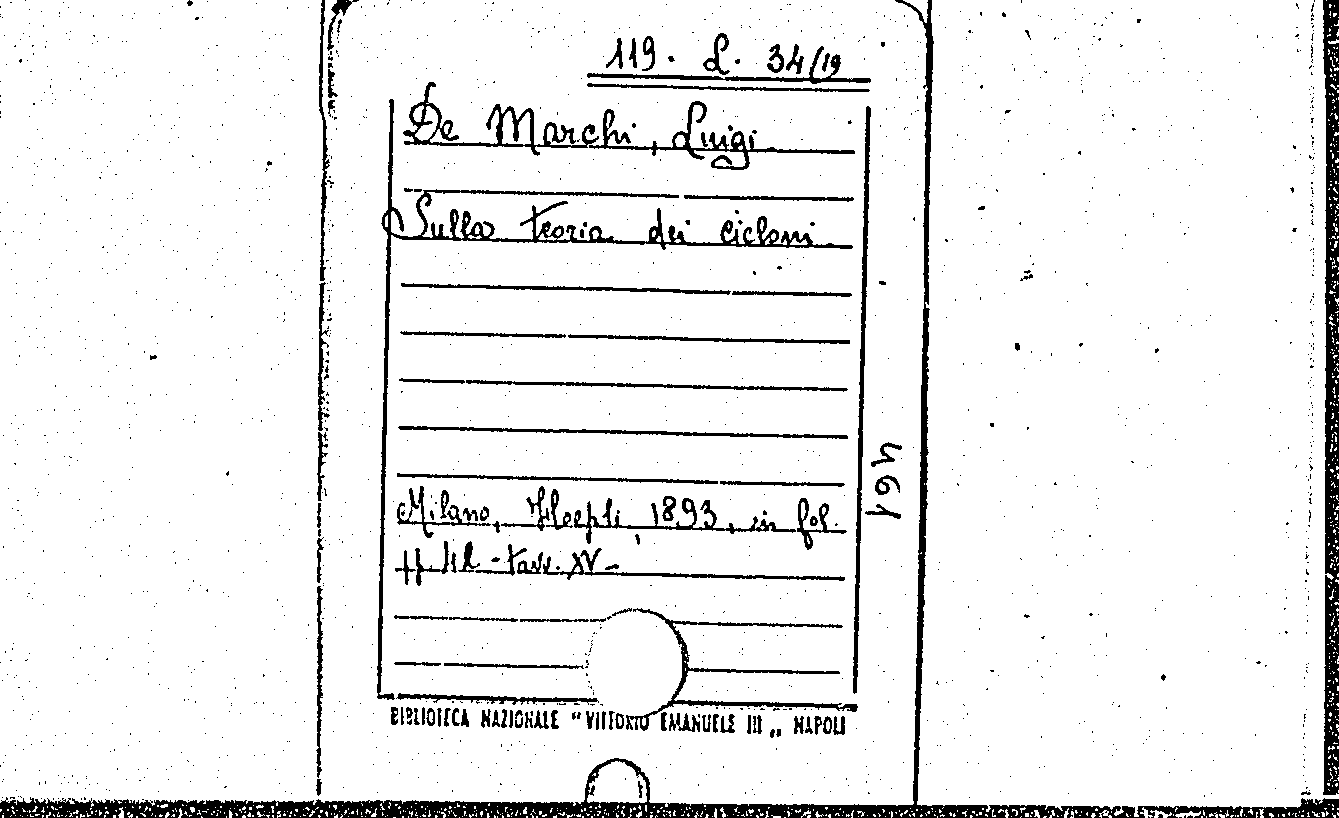 119. L. 34/19
De Marchi, Luigi
Sulla teoria dei cicloni
Milano, Hoepli, 1893, in fol.
pp. 42 - tavv. XV -
461
BIBLIOTECA NAZIONALE "VITTORIO EMANUELE III„ NAPOLI